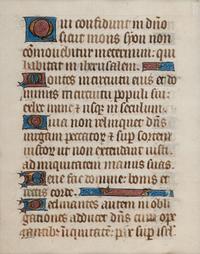 Qui confidunt in dño
sicut mons syon non
cõmouebitur ineternum: qui
habitat in iherusalem.
Montes in circuitu eius et do
minus in circuitu populi sui
ex hoc nunc et usqz in seculum.
Quia non relinquet dñs
uirgam peccatorum sup sortem
iustorum ut non extendant iusti
ad iniquitatem manus suas
Bene fac domine: bonis et
rectis corde.
Declinantes autem in obli
gationes adducet dñs cum ope
rantibus iniquitatẽ: pax sup isrl